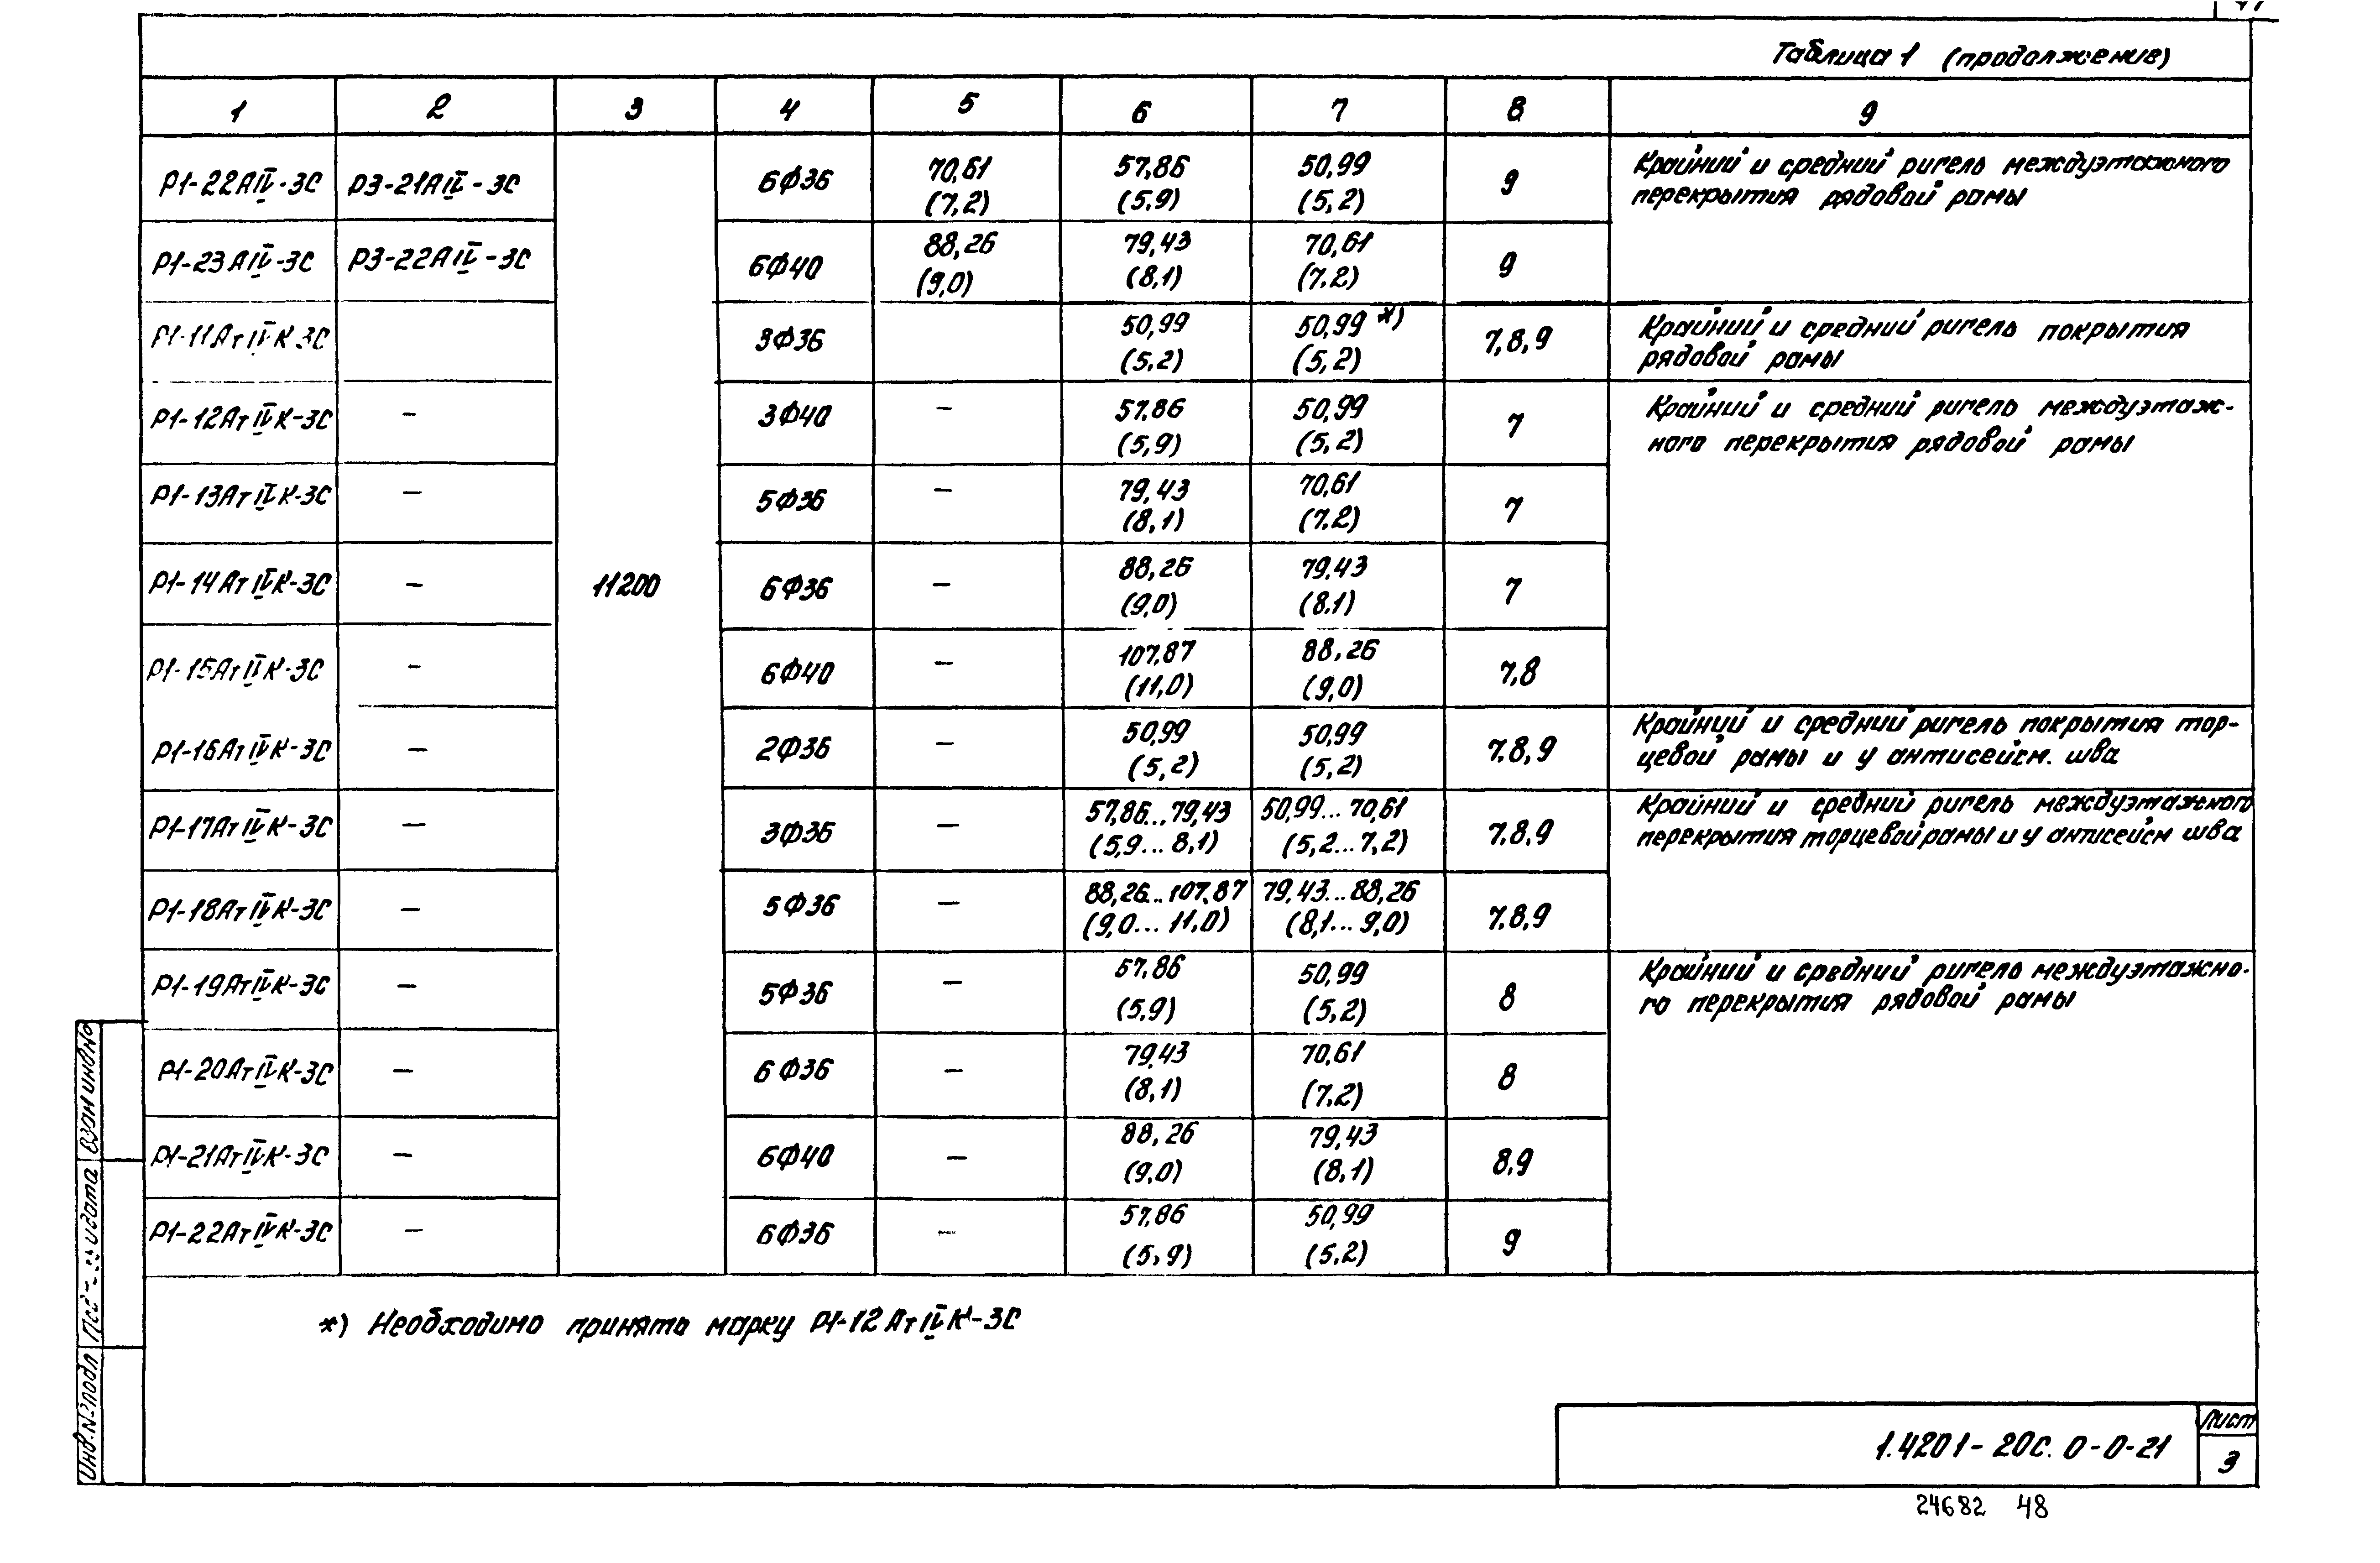 Таблица 1 (продолжение)
1 2 3 4 5 6 7 8 9
Р1-22АIV-3С Р3-21АIV-3С 6Ф36 70,61 (7,2) 57,86 (5,9) 50,99 (5,2) 9 Крайний и средний ригель междуэтажного
перекрытия рядовой рамы
Р1-23АIV-3С Р3-22АIV-3С 6Ф40 88,26 (9,0) 79,43 (8,1) 70,61 (7,2) 9
Р1-11АтIVК-3С 3Ф36 50,99 (5,2) 50,99 *) (5,2) 7,8,9 Крайний и средний ригель покрытия
рядовой рамы
Р1-12АтIVК-3С – 3Ф40 – 57,86 (5,9) 50,99 (5,2) 7 Крайний и средний ригель междуэтаж-
ного перекрытия рядовой рамы
Р1-13АтIVК-3С – 5Ф36 – 79,43 (8,1) 70,61 (7,2) 7
Р1-14АтIVК-3С – 11200 6Ф36 – 88,26 (9,0) 79,43 (8,1) 7
Р1-15АтIVК-3С – 6Ф40 – 107,87 (11,0) 88,26 (9,0) 7,8
Р1-16АтIVК-3С – 2Ф36 – 50,99 (5,2) 50,99 (5,2) 7,8,9 Крайний и средний ригель покрытия тор-
цевой рамы и у антисейсм. шва
Р1-17АтIVК-3С – 3Ф36 – 57,86...79,43 (5,9...8,1) 50,99...70,61 (5,2...7,2) 7,8,9 Крайний и средний ригель междуэтажного
перекрытия торцевой рамы и у антисейсм шва
Р1-18АтIVК-3С – 5Ф36 – 88,26...107,87 (9,0...11,0) 79,43...88,26 (8,1...9,0) 7,8,9
Р1-19АтIVК-3С – 5Ф36 – 57,86 (5,9) 50,99 (5,2) 8 Крайний и средний ригель междуэтажно-
го перекрытия рядовой рамы
Р1-20АтIVК-3С – 6Ф36 – 79,43 (8,1) 70,61 (7,2) 8
Р1-21АтIVК-3С – 6Ф40 – 88,26 (9,0) 79,43 (8,1) 8,9
Р1-22АтIVК-3С – 6Ф36 – 57,86 (5,9) 50,99 (5,2) 9
*) Необходимо принять марку Р1-12АтIVК-3С
Инв.№подл
и дата
Взам инв№
1.420 1-20с. 0-0-21
Лист
3
24682 48